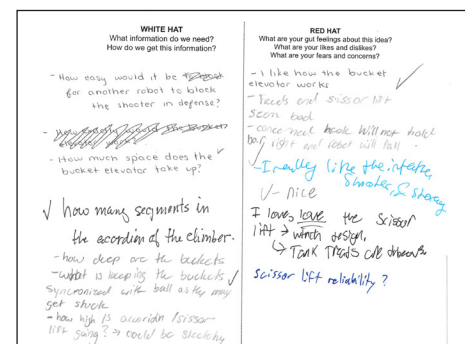 WHITE HAT
What information do we need?
How do we get this information?
- How easy would it be
for another robot to block
the shooter in defense?
- How much space does the
bucket elevator take up?
√ how many segments in
the acordion of the climber.
- how deep are the buckets
- what is keeping the buckets √
syncronized with ball as they may
get stuck
- how high is acordin /sissor
lift going? → could be sketchy
RED HAT
What are your gut feelings about this idea?
What are your likes and dislikes?
What are your fears and concerns?
- I like how the bucket
elevator works √
- Treads and sissor lift
seem bad
- concerned hook will not hold
bar right and robot will fall
- I really like the intake,
Shooter, & storag
√ - nice
I love, love the scissor
lift → winch design,
↳ Tank Treads are
scissor lift reliability?